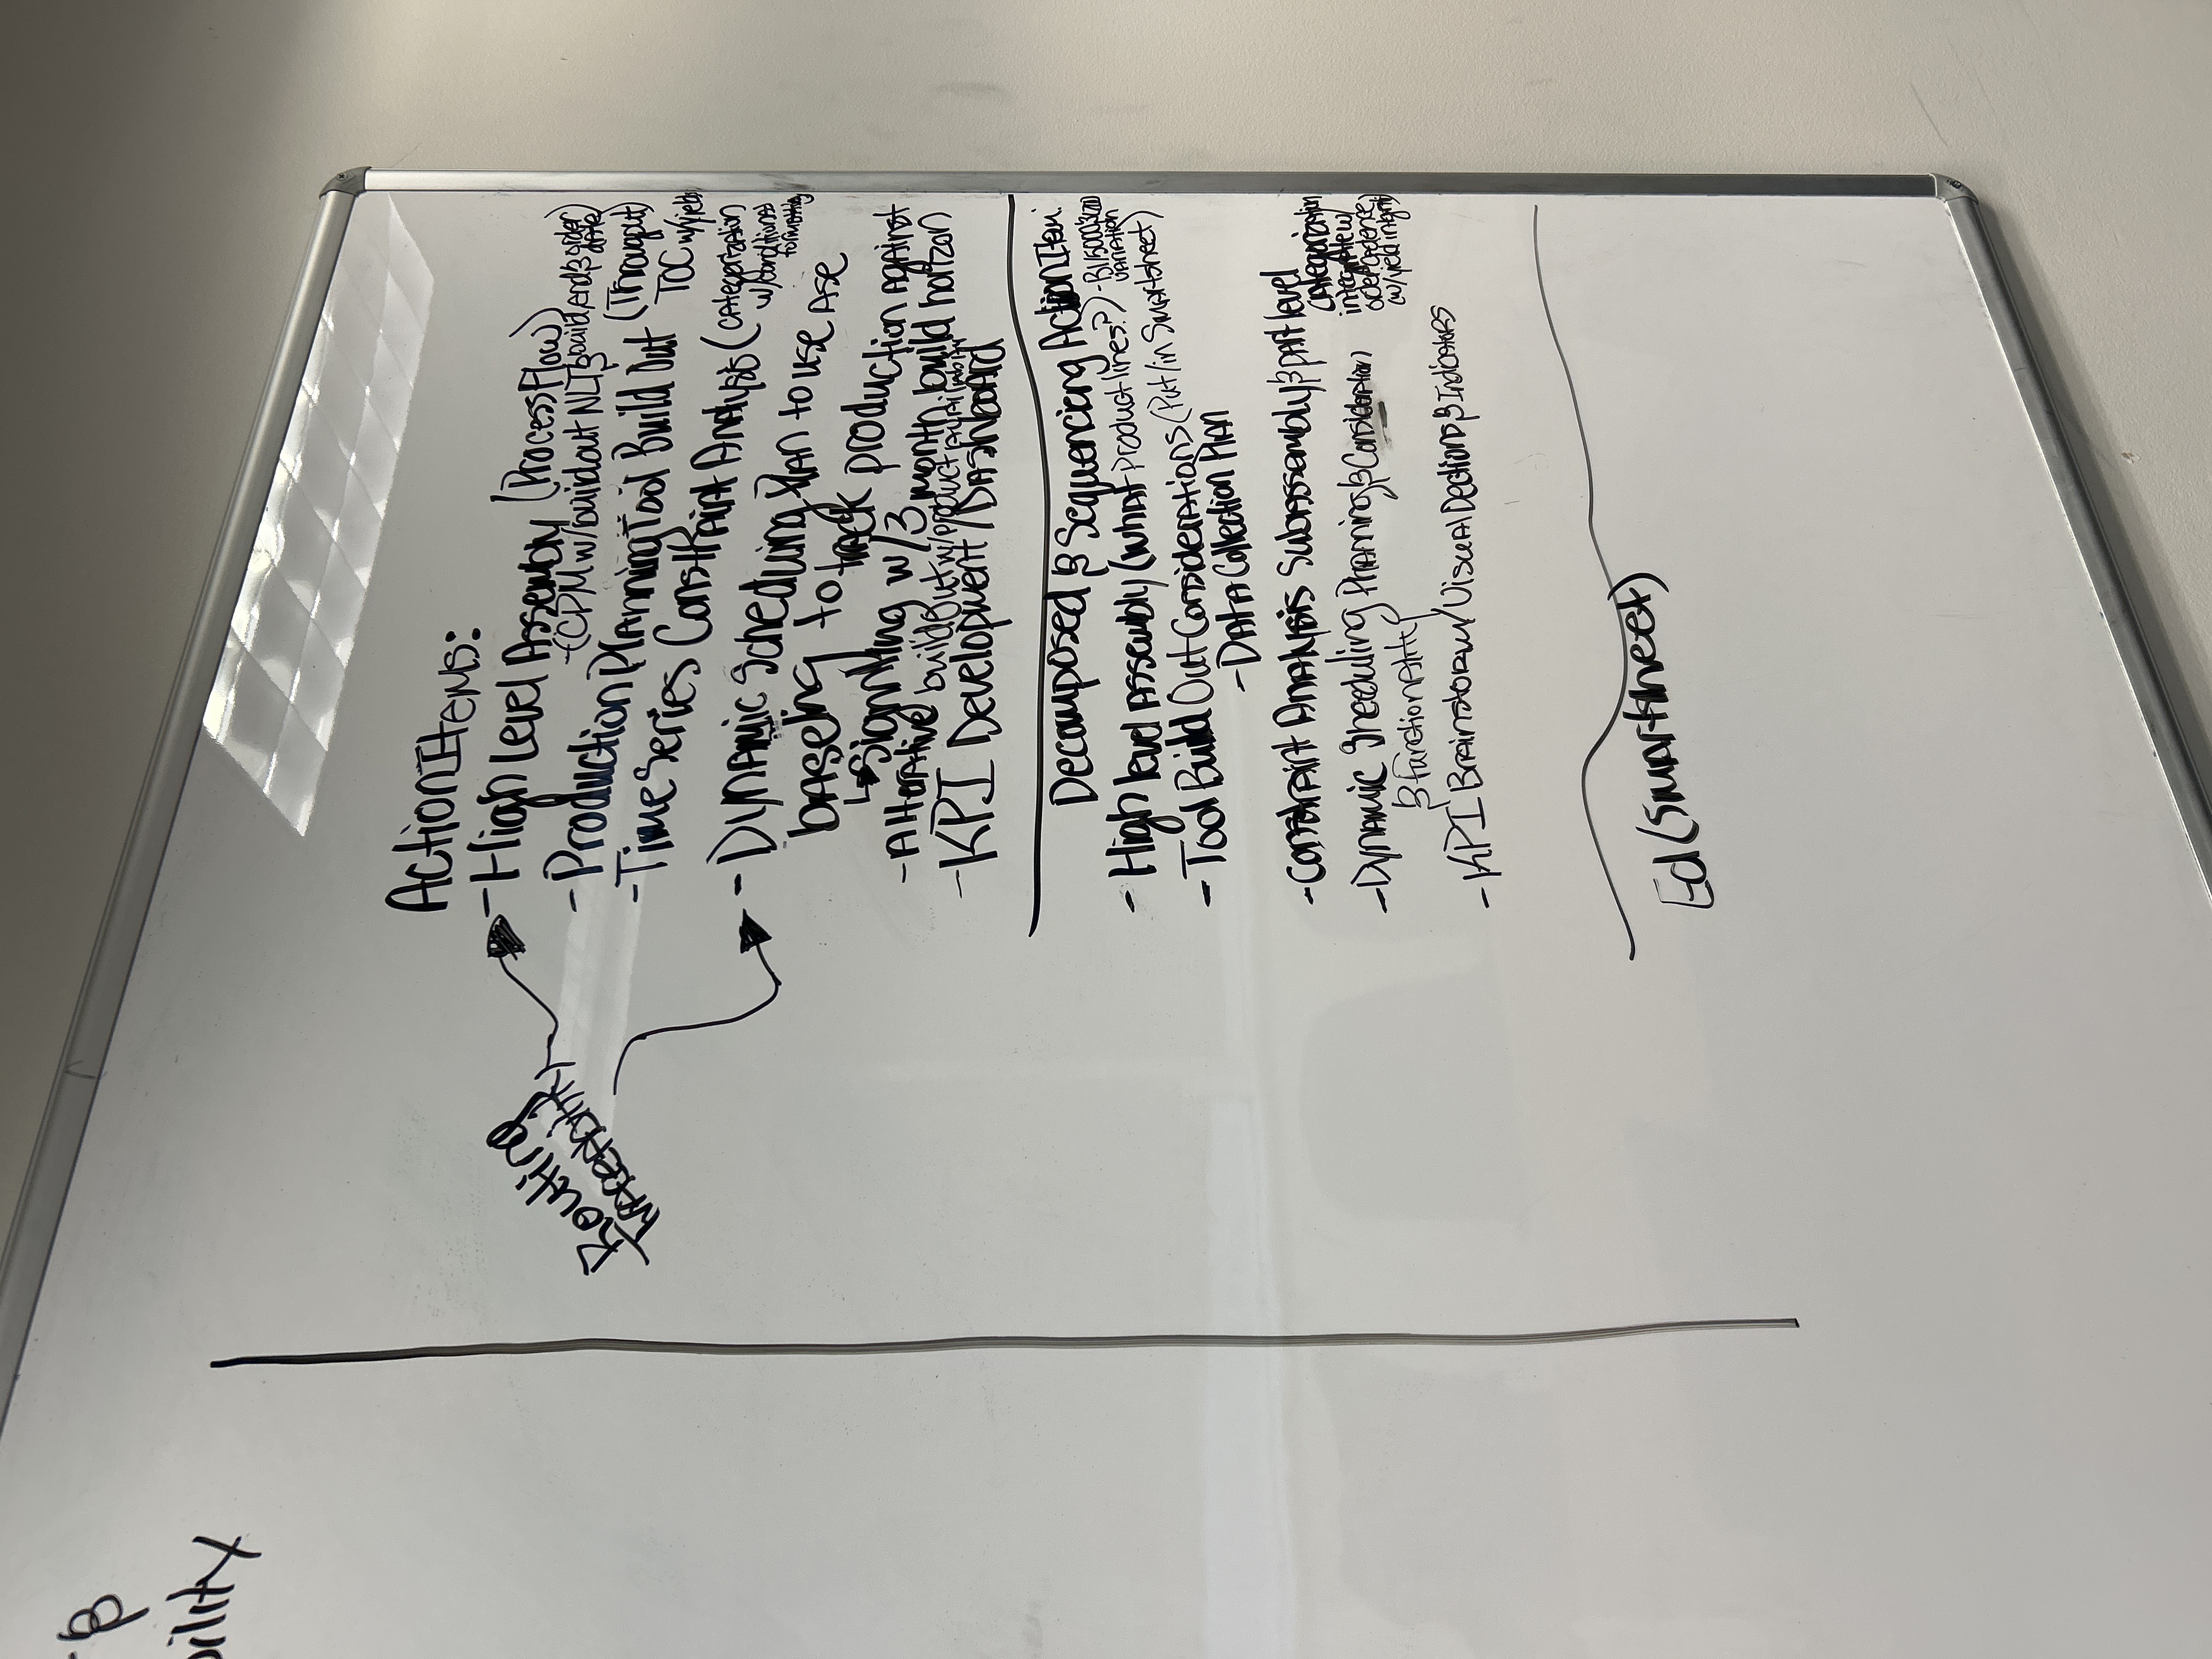 Routing
Traceability
Action Items:
- High Level Assembly (Process Flow)
- (CPM w/buildout NLT & build, end & order date)
- Production Planning Tool Build Out (Througput)
TOC w/yields
- Time Series Constraint Analysis (categorization
w/conditional
formatting
- Dynamic Scheduling Plan to use as a
baseling to track production against
↳ Signaling w/3 month build horizon
- Alterative buildout w/product availability
- KPI Development/Dashboard
Decomposed & Sequencing Action Item:
- High level Assembly (what Product lines?) -
variation
- Tool Build Out Considerations (Put/in Smartsheet)
- Data Collection Plan
- Constraint Analysis Subassembly & part level
categorization
integrate w/
w/yield
- Dynamic Sheduling Planning & Consideration
& functionality
- KPI Brainstorm w/ Visual Dections & Indicators
Ed (Smartsheet)